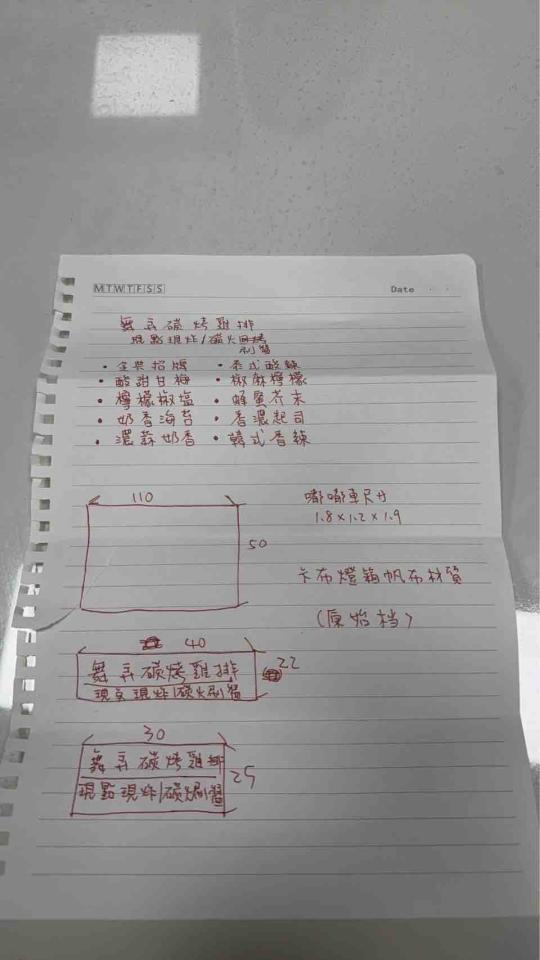 MTWTFSS
Date
舞弄碳烤雞排
現點現炸/碳火
刷醬
・金獎招牌 ・泰式酸辣
・酸甜甘梅 ・椒麻檸檬
・檸檬椒塩 ・蜂蜜芥末
・奶香海苔 ・香濃起司
・濃蒜奶香 ・韓式香辣
110
50
嘟嘟車尺寸
1.8×1.2×1.9
卡布燈箱帆布材質
(原始档)
40
22
舞弄碳烤雞排
現點現炸/碳火刷醬
30
25
舞弄碳烤雞排
現點現炸/碳烤刷醬